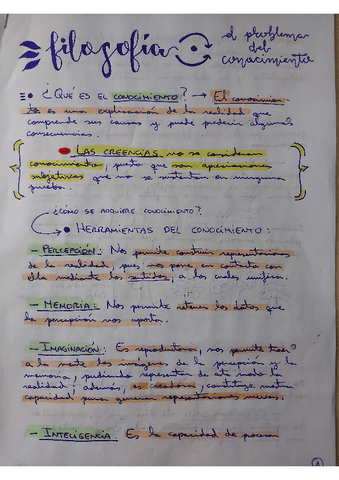 filosofía
el problema
del
conocimiento
¿Qué es el conocimiento? → El conocimien-
to es una explicación de la realidad que
comprende sus causas y puede predecir algunas
consecuencias.
Las creencias no se consideran
conocimiento, puesto que son apreciaciones
subjetivas que no se sustentan en ninguna
prueba.
¿Cómo se adquiere conocimiento?
Herramientas del conocimiento:
- Percepción: Nos permite construir representaciones
de la realidad, pues nos pone en contacto con
ella mediante los sentidos, a los cuales unifica.
- Memoria: Nos permite retener los datos que
la percepción nos aporta.
- Imaginación: Es reproductora, nos permite traer
a la mente las imágenes de la percepción y la
memoria, pudiendo representar de este modo la
realidad; además, es creadora, constituye nuestra
capacidad para generar representaciones nuevas.
- Inteligencia: Es la capacidad de procesar
1